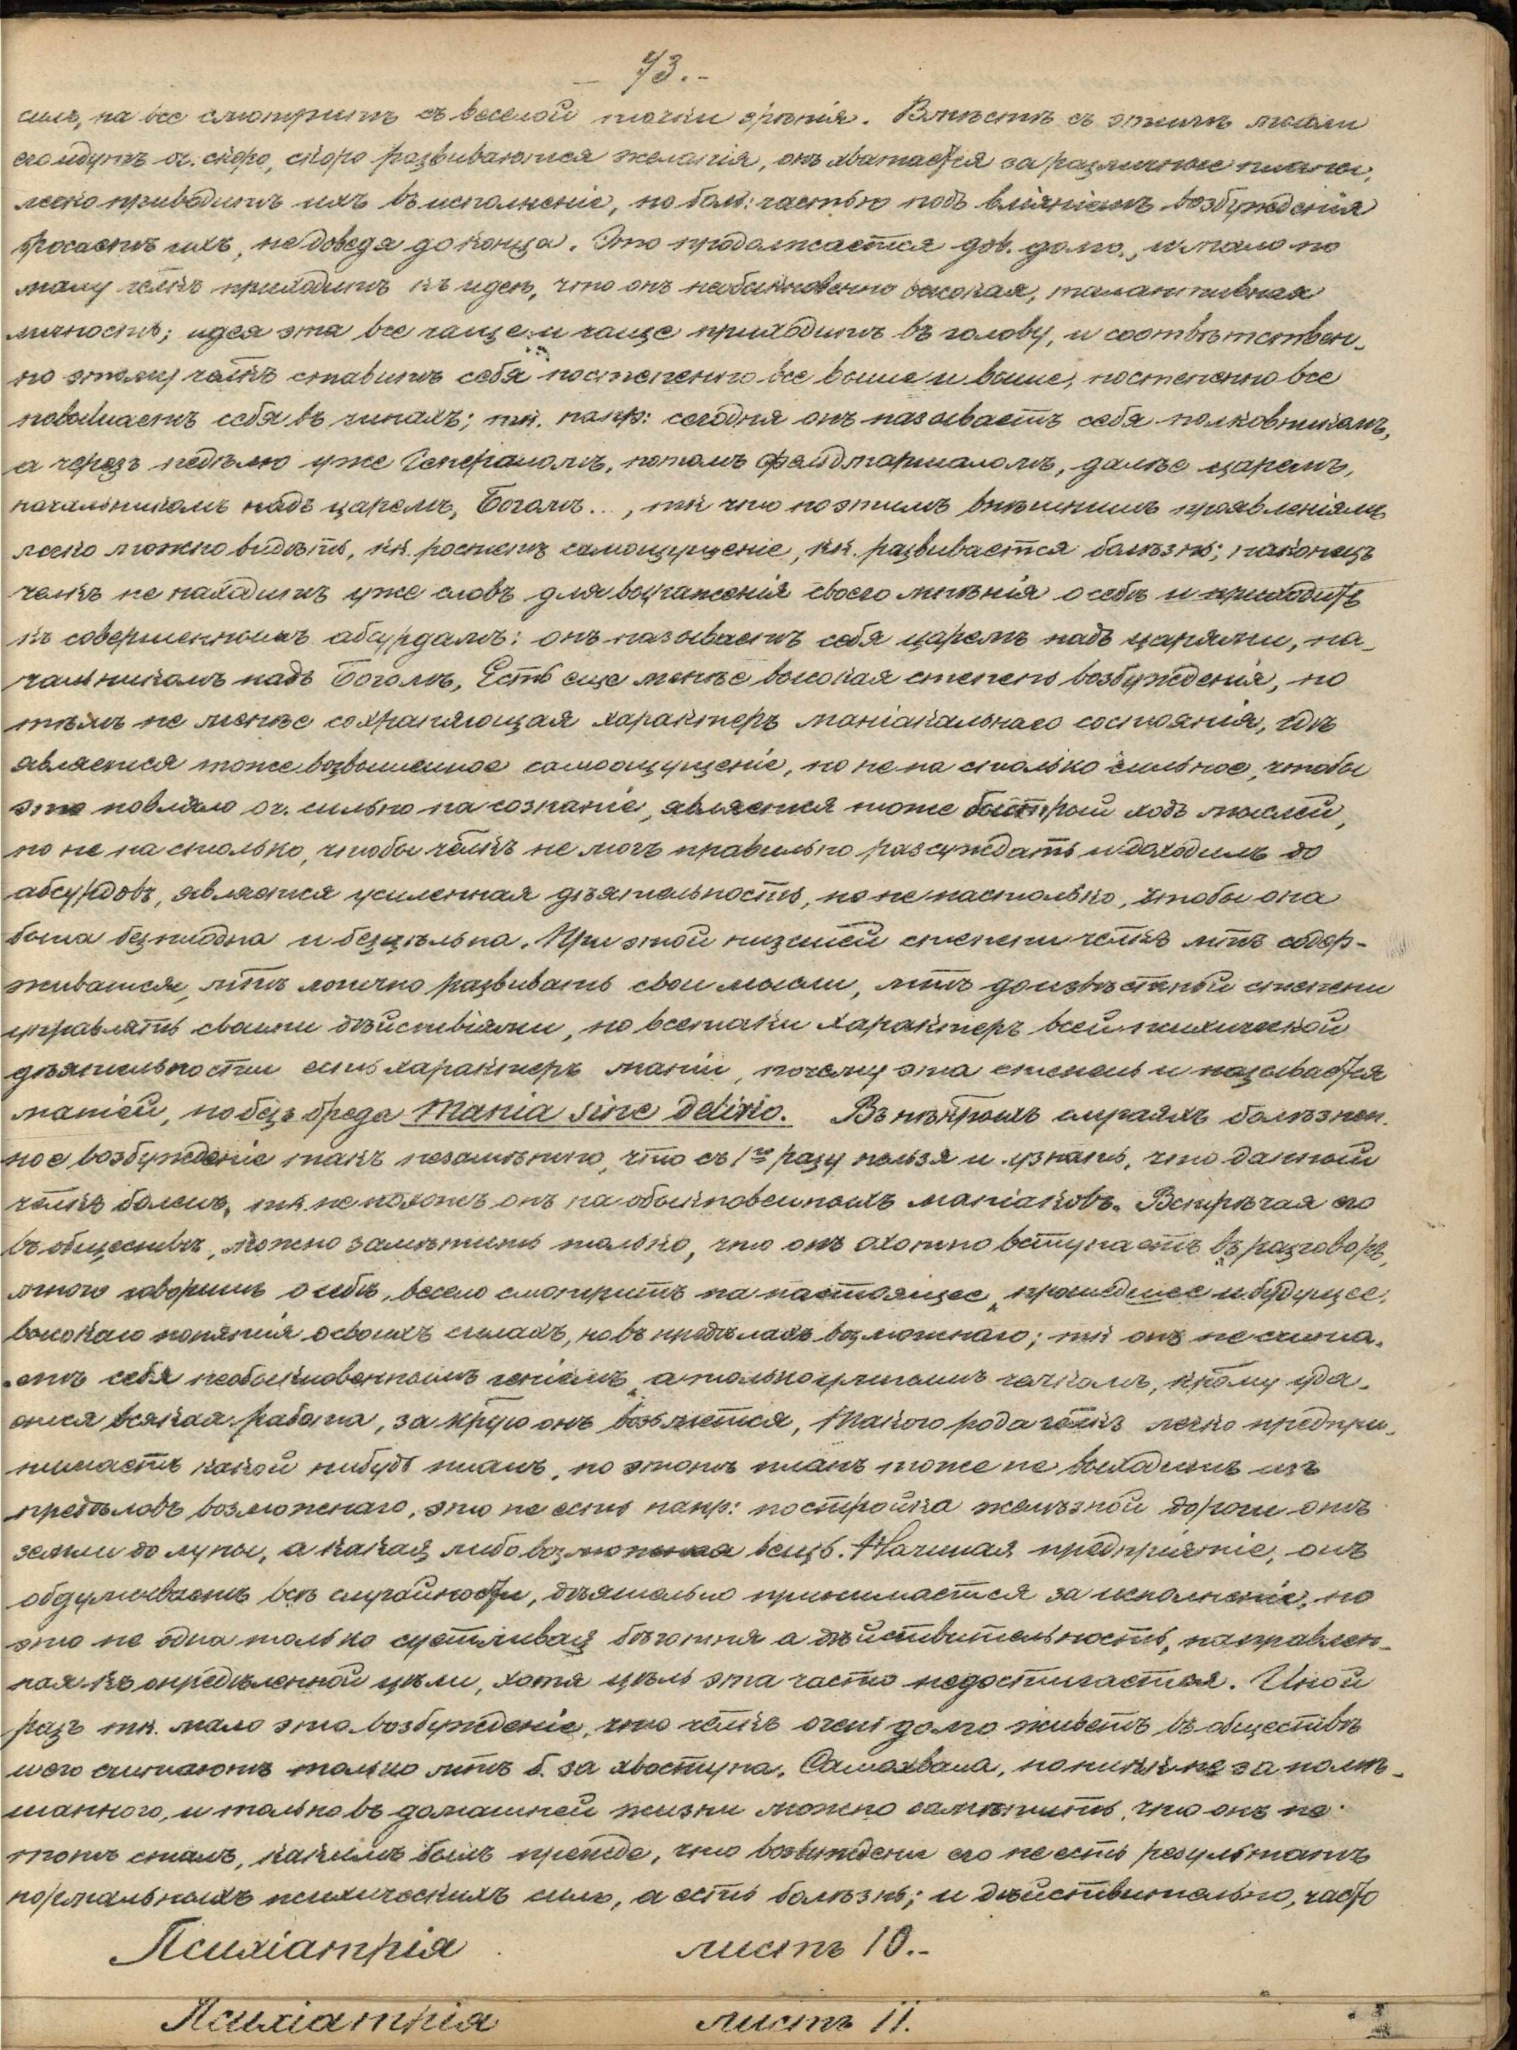 — 73. –
силъ, на все смотритъ съ веселой точки зрѣнія. Вмѣстѣ съ этимъ мысли
его идутъ оч. скоро, скоро развиваются желанія, онъ хватается за различные планы,
легко приводитъ ихъ въ исполненіе, но больш: частью подъ вліяніемъ возбужденія
бросаетъ ихъ, не доведя до конца. Это продолжается дов. долго, и мало по
малу челкъ приходитъ къ идеѣ, что онъ необыкновенно высокая, талантливая
личность; идея эта все чаще и чаще приходитъ въ голову, и соотвѣтствен-
но этому челкъ ставитъ себя постепенно все выше и выше, постепенно все
повышаетъ себя въ чинахъ; тк. напр: сегодня онъ называетъ себя полковникомъ,
а черезъ недѣлю уже Генераломъ, потомъ фельдмаршаломъ, далѣе царемъ,
начальникомъ надъ царемъ, Богомъ.., тк что по этимъ внѣшнимъ проявленіямъ
легко можно видѣть, кк. ростетъ самоощущеніе, кк. развивается болѣзнь; наконецъ
челкъ не находитъ уже словъ для выраженія своего мнѣнія о себѣ и приходитъ
къ совершеннымъ абсурдамъ: онъ называетъ себя царемъ надъ царями, на-
чальникомъ надъ Богомъ. Есть еще менѣе высокая степень возбужденія, но
тѣмъ не менѣе сохраняющая характеръ маніакальнаго состоянія, гдѣ
является тоже возвышенное самоощущеніе, но не на столько сильное, чтобы
это повліяло оч. сильно на сознаніе, является тоже быстрый ходъ мыслей,
но не на столько, чтобы челкъ не могъ правильно разсуждать и доходилъ до
абсурдовъ, является усиленная дѣятельность, но не настолько, чтобы она
была безплодна и безцѣльна. При этой низшей степени челкъ мтъ сдер-
живаться, мтъ логично развивать свои мысли, мтъ до извѣстной степени
управлять своими дѣйствіями, но всетаки характеръ всей психической
дѣятельности есть характеръ маніи, почему эта степень и называется
маніей, но безъ бреда Mania sine Delirio. Въ нѣкторыхъ случаяхъ болѣзнен-
ное возбужденіе такъ незамѣтно, что съ 1го разу нельзя и узнать, что данный
челкъ боленъ, тк не похожъ онъ на обыкновенныхъ маніаковъ. Встрѣчая его
въ обществѣ, можно замѣтить только, что онъ охотно вступаетъ въ разговоръ,
много говоритъ о себѣ, весело смотритъ на настоящее, прошедшее и будущее;
высокаго понятія о своихъ силахъ, но въ предѣлахъ возможнаго; тк онъ не счита-
етъ себя необыкновеннымъ геніемъ, а только умнымъ челкомъ, ккому уда-
ется всякая работа, за ккрую онъ возьмется. Такого рода челкъ легко предпри-
нимаетъ какой нибудь планъ, но этотъ планъ тоже не выходитъ изъ
предѣловъ возможнаго, это не есть напр: постройка желѣзной дороги отъ
земли до луны, а какая либо возможная вещь. Начиная предпріятіе, онъ
обдумываетъ всѣ случайности, дѣятельно принимается за исполненіе, но
это не одна только суетливая бѣготня а дѣйствительность, направлен-
ная къ опредѣленной цѣли, хотя цѣль эта часто недостигается. Иной
разъ тк. мало это возбужденіе, что челкъ очень долго живетъ въ обществѣ
и его считаютъ только мтъ б. за хвастуна, Самохвала, но никкъ не за помѣ-
шаннаго, и только въ домашней жизни можно замѣтить, что онъ не
тотъ сталъ, какимъ былъ прежде, что возбужденіе его не есть результатъ
нормальныхъ психическихъ силъ, а есть болѣзнь; и дѣйствительно, часто
Психіатрія листъ 10.–
Психіатрія листъ 11.